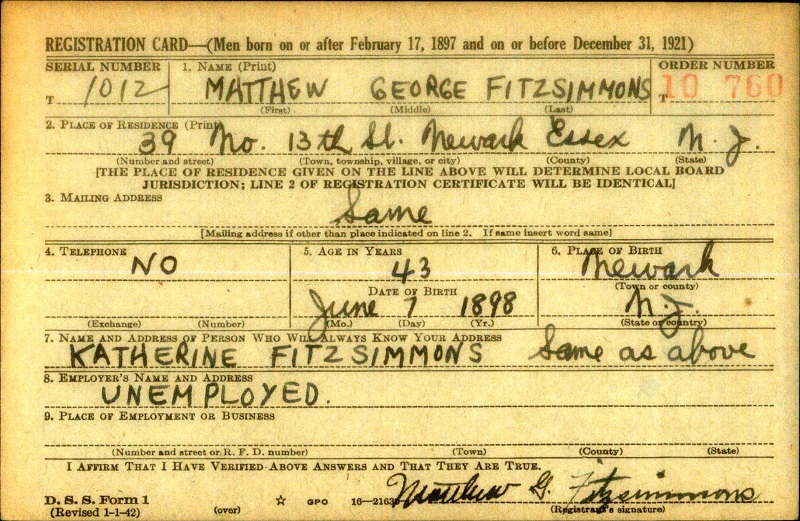 REGISTRATION CARD—(Men born on or after February 17, 1897 and on or before December 31, 1921)
SERIAL NUMBER 1. NAME (Print) ORDER NUMBER
T 1012 MATTHEW GEORGE FITZSIMMONS T 10 760
(First) (Middle) (Last)
2. PLACE OF RESIDENCE (Print)
39 No. 13th St. Newark Essex N. J.
(Number and street) (Town, township, village, or city) (County) (State)
[THE PLACE OF RESIDENCE GIVEN ON THE LINE ABOVE WILL DETERMINE LOCAL BOARD
JURISDICTION; LINE 2 OF REGISTRATION CERTIFICATE WILL BE IDENTICAL]
3. MAILING ADDRESS
Same
[Mailing address if other than place indicated on line 2. If same insert word same]
4. TELEPHONE 5. AGE IN YEARS 6. PLACE OF BIRTH
NO 43 Newark
DATE OF BIRTH (Town or county)
June 7 1898 N.J.
(Exchange) (Number) (Mo.) (Day) (Yr.) (State or country)
7. NAME AND ADDRESS OF PERSON WHO WILL ALWAYS KNOW YOUR ADDRESS
KATHERINE FITZSIMMONS Same as above
8. EMPLOYER'S NAME AND ADDRESS
UNEMPLOYED.
9. PLACE OF EMPLOYMENT OR BUSINESS
(Number and street or R. F. D. number) (Town) (County) (State)
I AFFIRM THAT I HAVE VERIFIED ABOVE ANSWERS AND THAT THEY ARE TRUE.
D. S. S. Form 1 Matthew G. Fitzsimmons
(Revised 1-1-42) (over) ☆ GPO 16—21630 (Registrant's signature)